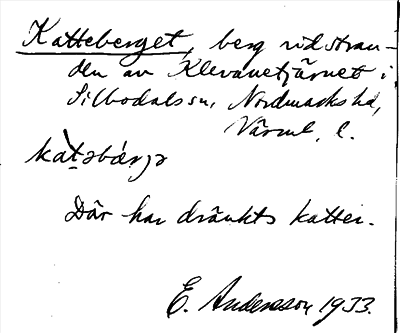 Katteberget, berg vid stran-
den av Klevanetjärnet i
Silbodals sn, Nordmarks hd,
Värml. l.
Där har dränkts katter.
E. Andersson 1933.